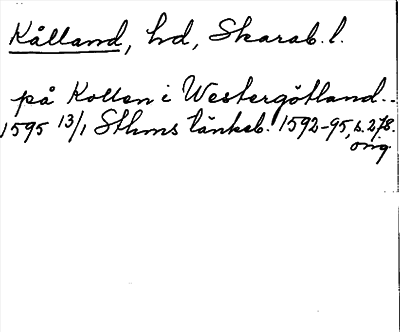 Kålland, hd, Skarab. l.
på Kollen i Westergötland..
1595 13/1 Sthms tänkeb. 1592-95, s. 278.
orig.